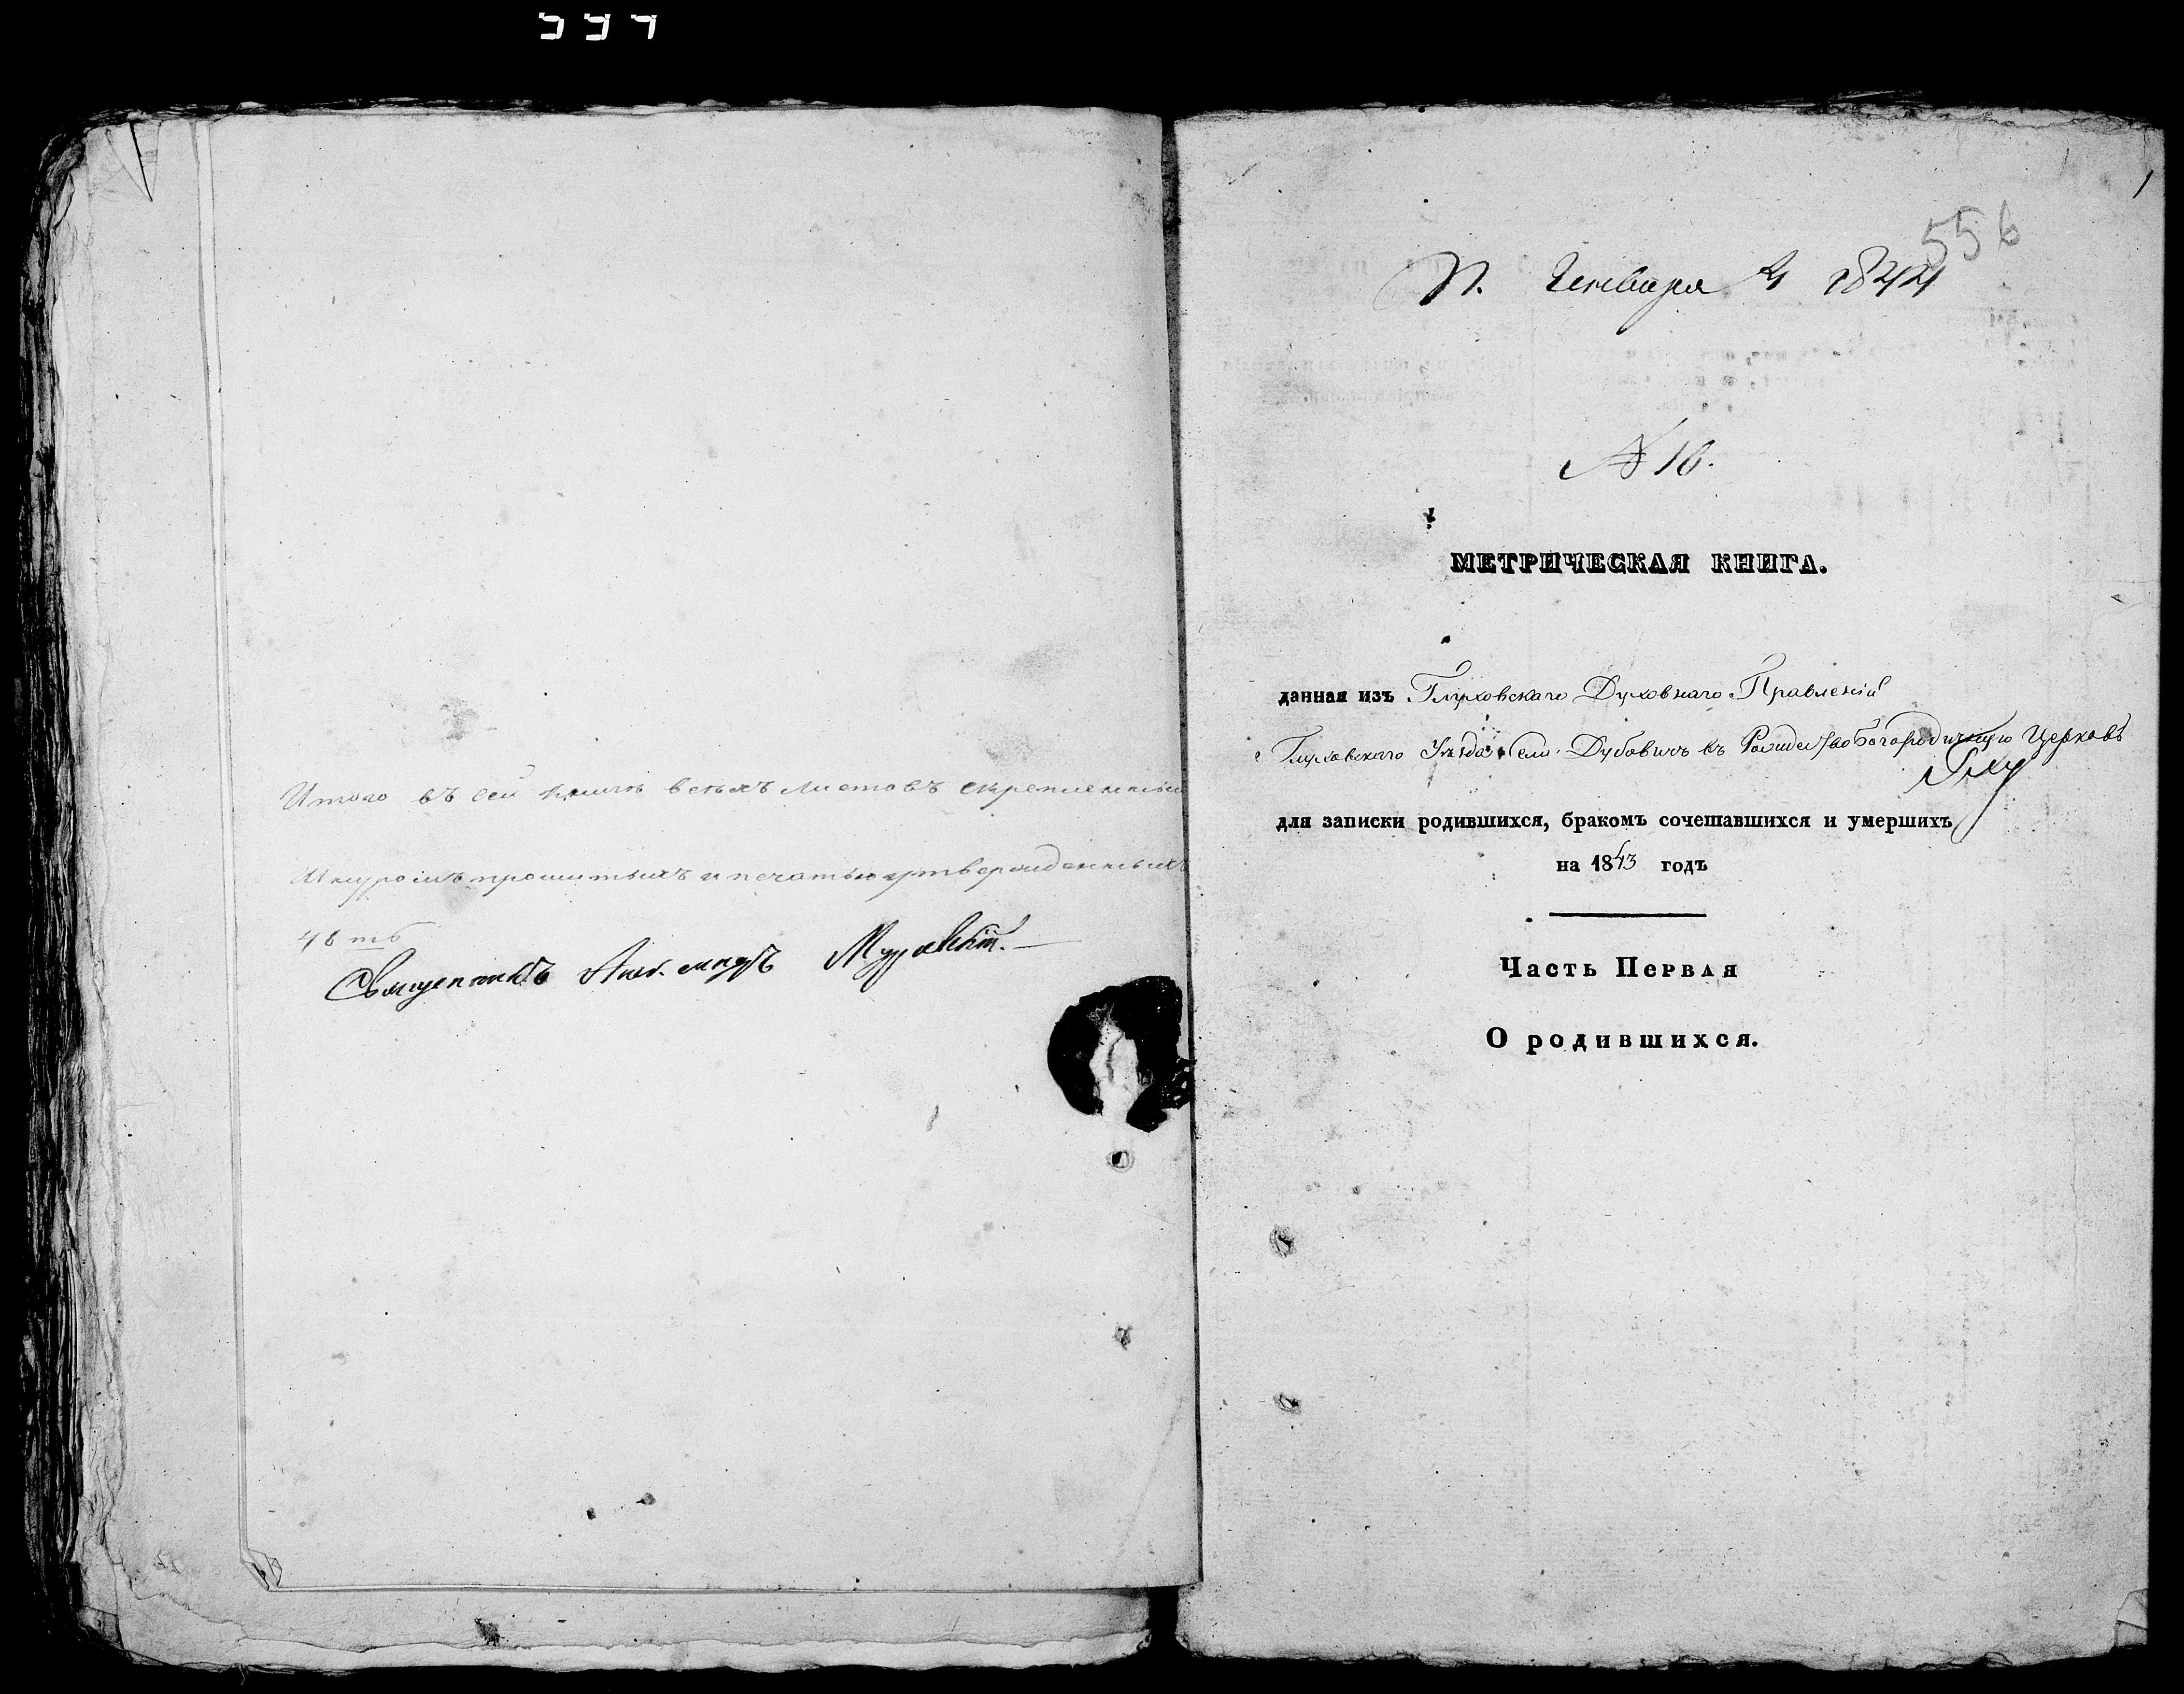 Итого въ сей книгѣ всѣхъ листовъ скрепленныхъ
Шнуромъ прошитыхъ и печатью утвержденныхъ
Священникъ
1
556
П. Генваря 4 1844
№ 16.
МЕТРИЧЕСКАЯ КНИГА.
данная изъ Глуховскаго Духовнаго Правленія
Глуховскаго Уѣзда Села Дубовичъ въ Рождество Богородичную Церковь
для записки родившихся, бракомъ сочетавшихся и умершихъ
на 1843 годъ
Часть Первая
О родившихся.